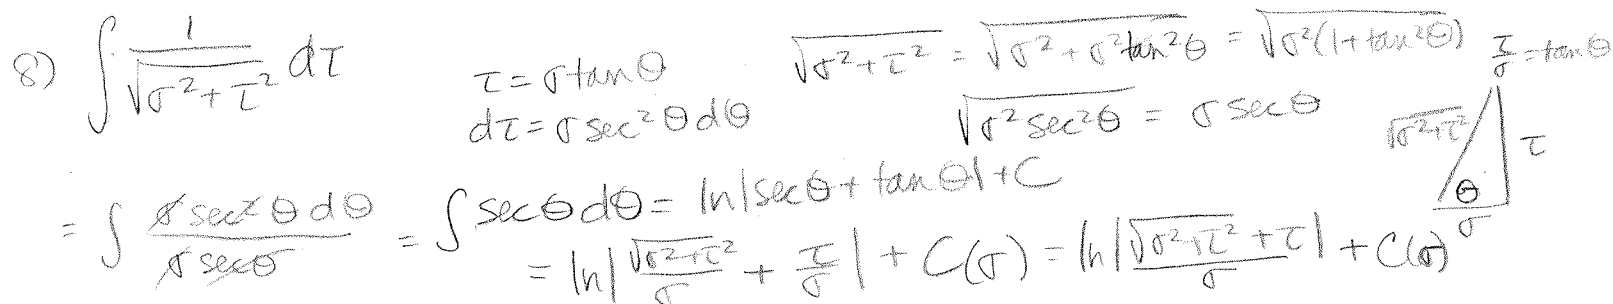 8) ∫ 1/√(σ²+τ²) dτ
τ = σ tan θ
dτ = σ sec² θ dθ
√(σ²+τ²) = √(σ²+σ² tan² θ) = √(σ²(1+tan² θ))
√(σ² sec² θ) = σ sec θ
τ/σ = tan θ
√(σ²+τ²)
τ
θ
σ
= ∫ (σ sec² θ dθ)/(σ sec θ) = ∫ sec θ dθ = ln|sec θ + tan θ| + C
= ln|√(σ²+τ²)/σ + τ/σ| + C(σ) = ln|(√(σ²+τ²) + τ)/σ| + C(σ)